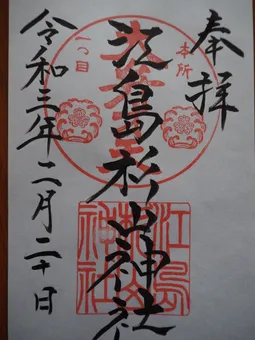 奉拝
本所
一つ目
江島杉山神社
令和三年二月二十日
江島
杉山
神社